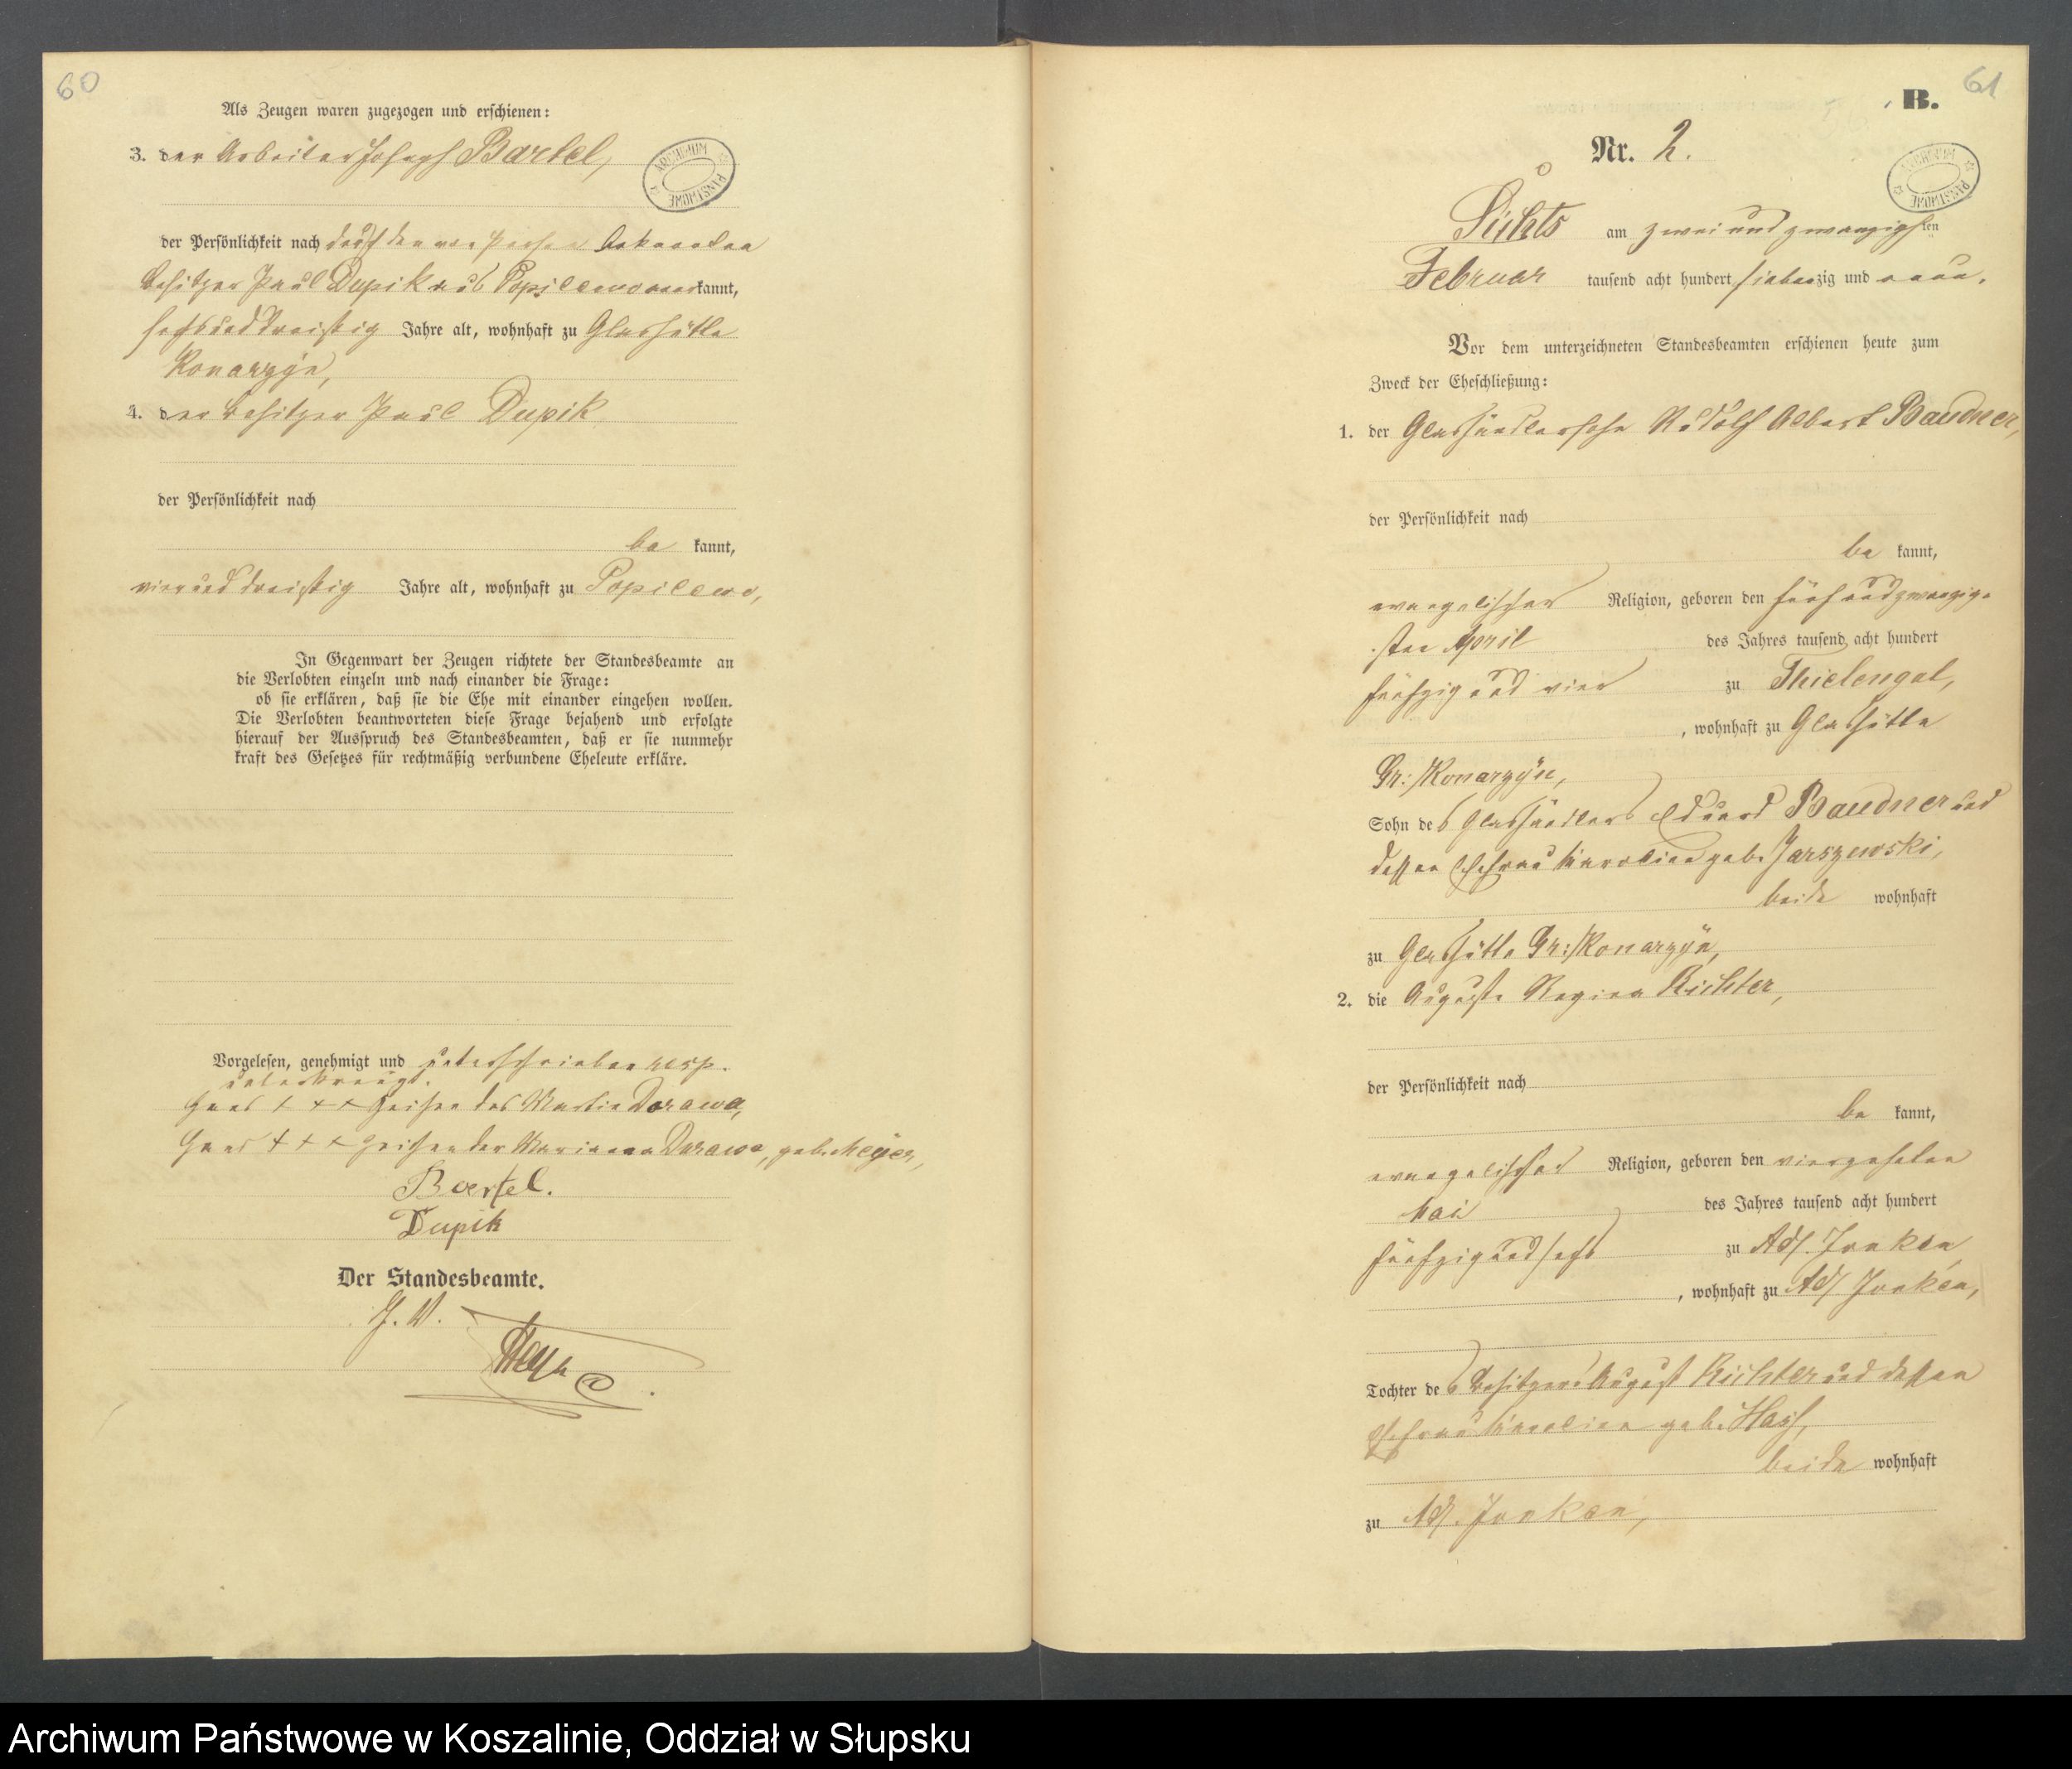 60
Als Zeugen waren zugezogen und erschienen:
3. der Arbeiter Joseph Bartel,
ARCHIWUM PAŃSTWOWE
der Persönlichkeit nach durch den von Person bekannten
Besitzer Paul Dupik aus Popilewo aner kannt,
sechsunddreißig Jahre alt, wohnhaft zu Glashütte
Konarzyn,
4. der Besitzer Paul Dupik
der Persönlichkeit nach
be kannt,
vierunddreißig Jahre alt, wohnhaft zu Popilewo,
In Gegenwart der Zeugen richtete der Standesbeamte an
die Verlobten einzeln und nach einander die Frage:
ob sie erklären, daß sie die Ehe mit einander eingehen wollen.
Die Verlobten beantworteten diese Frage bejahend und erfolgte
hierauf der Ausspruch des Standesbeamten, daß er sie nunmehr
kraft des Gesetzes für rechtmäßig verbundene Eheleute erkläre.
Vorgelesen, genehmigt und unterschrieben resp.
unterkreuzt.
Hand + + + Zeichen des Martin Dorawa,
Hand + + + Zeichen der Marianna Dorawa, geb. Meyer,
Bartel.
Dupik
Der Standesbeamte.
J. V.
61
B.
Nr. 2.
ARCHIWUM PAŃSTWOWE
am zweiundzwanzigsten
Februar tausend acht hundert siebenzig und neun.
Vor dem unterzeichneten Standesbeamten erschienen heute zum
Zweck der Eheschließung:
1. der Glashändlersohn Rudolf Albert Baudner,
der Persönlichkeit nach
be kannt,
evangelischer Religion, geboren den fünfundzwanzig-
sten April des Jahres tausend acht hundert
fünfzig und vier zu Thielengut,
, wohnhaft zu Glashütte
Gr:/Konarzyn,
Sohn des Glashändlers Eduard Baudner und
dessen Ehefrau Karoline geb. Jarszewski,
beide wohnhaft
zu Glashütte Gr:/Konarzyn,
2. die Auguste Regina Richter,
der Persönlichkeit nach
be kannt,
evangelischer Religion, geboren den vierzehnten
Mai des Jahres tausend acht hundert
fünfzig und sechs zu Adl. Jonken
, wohnhaft zu Adl. Jonken,
Tochter des Besitzers August Richter und dessen
Ehefrau Karoline geb. Hass,
beide wohnhaft
zu Adl. Jonken,
Archiwum Państwowe w Koszalinie, Oddział w Słupsku